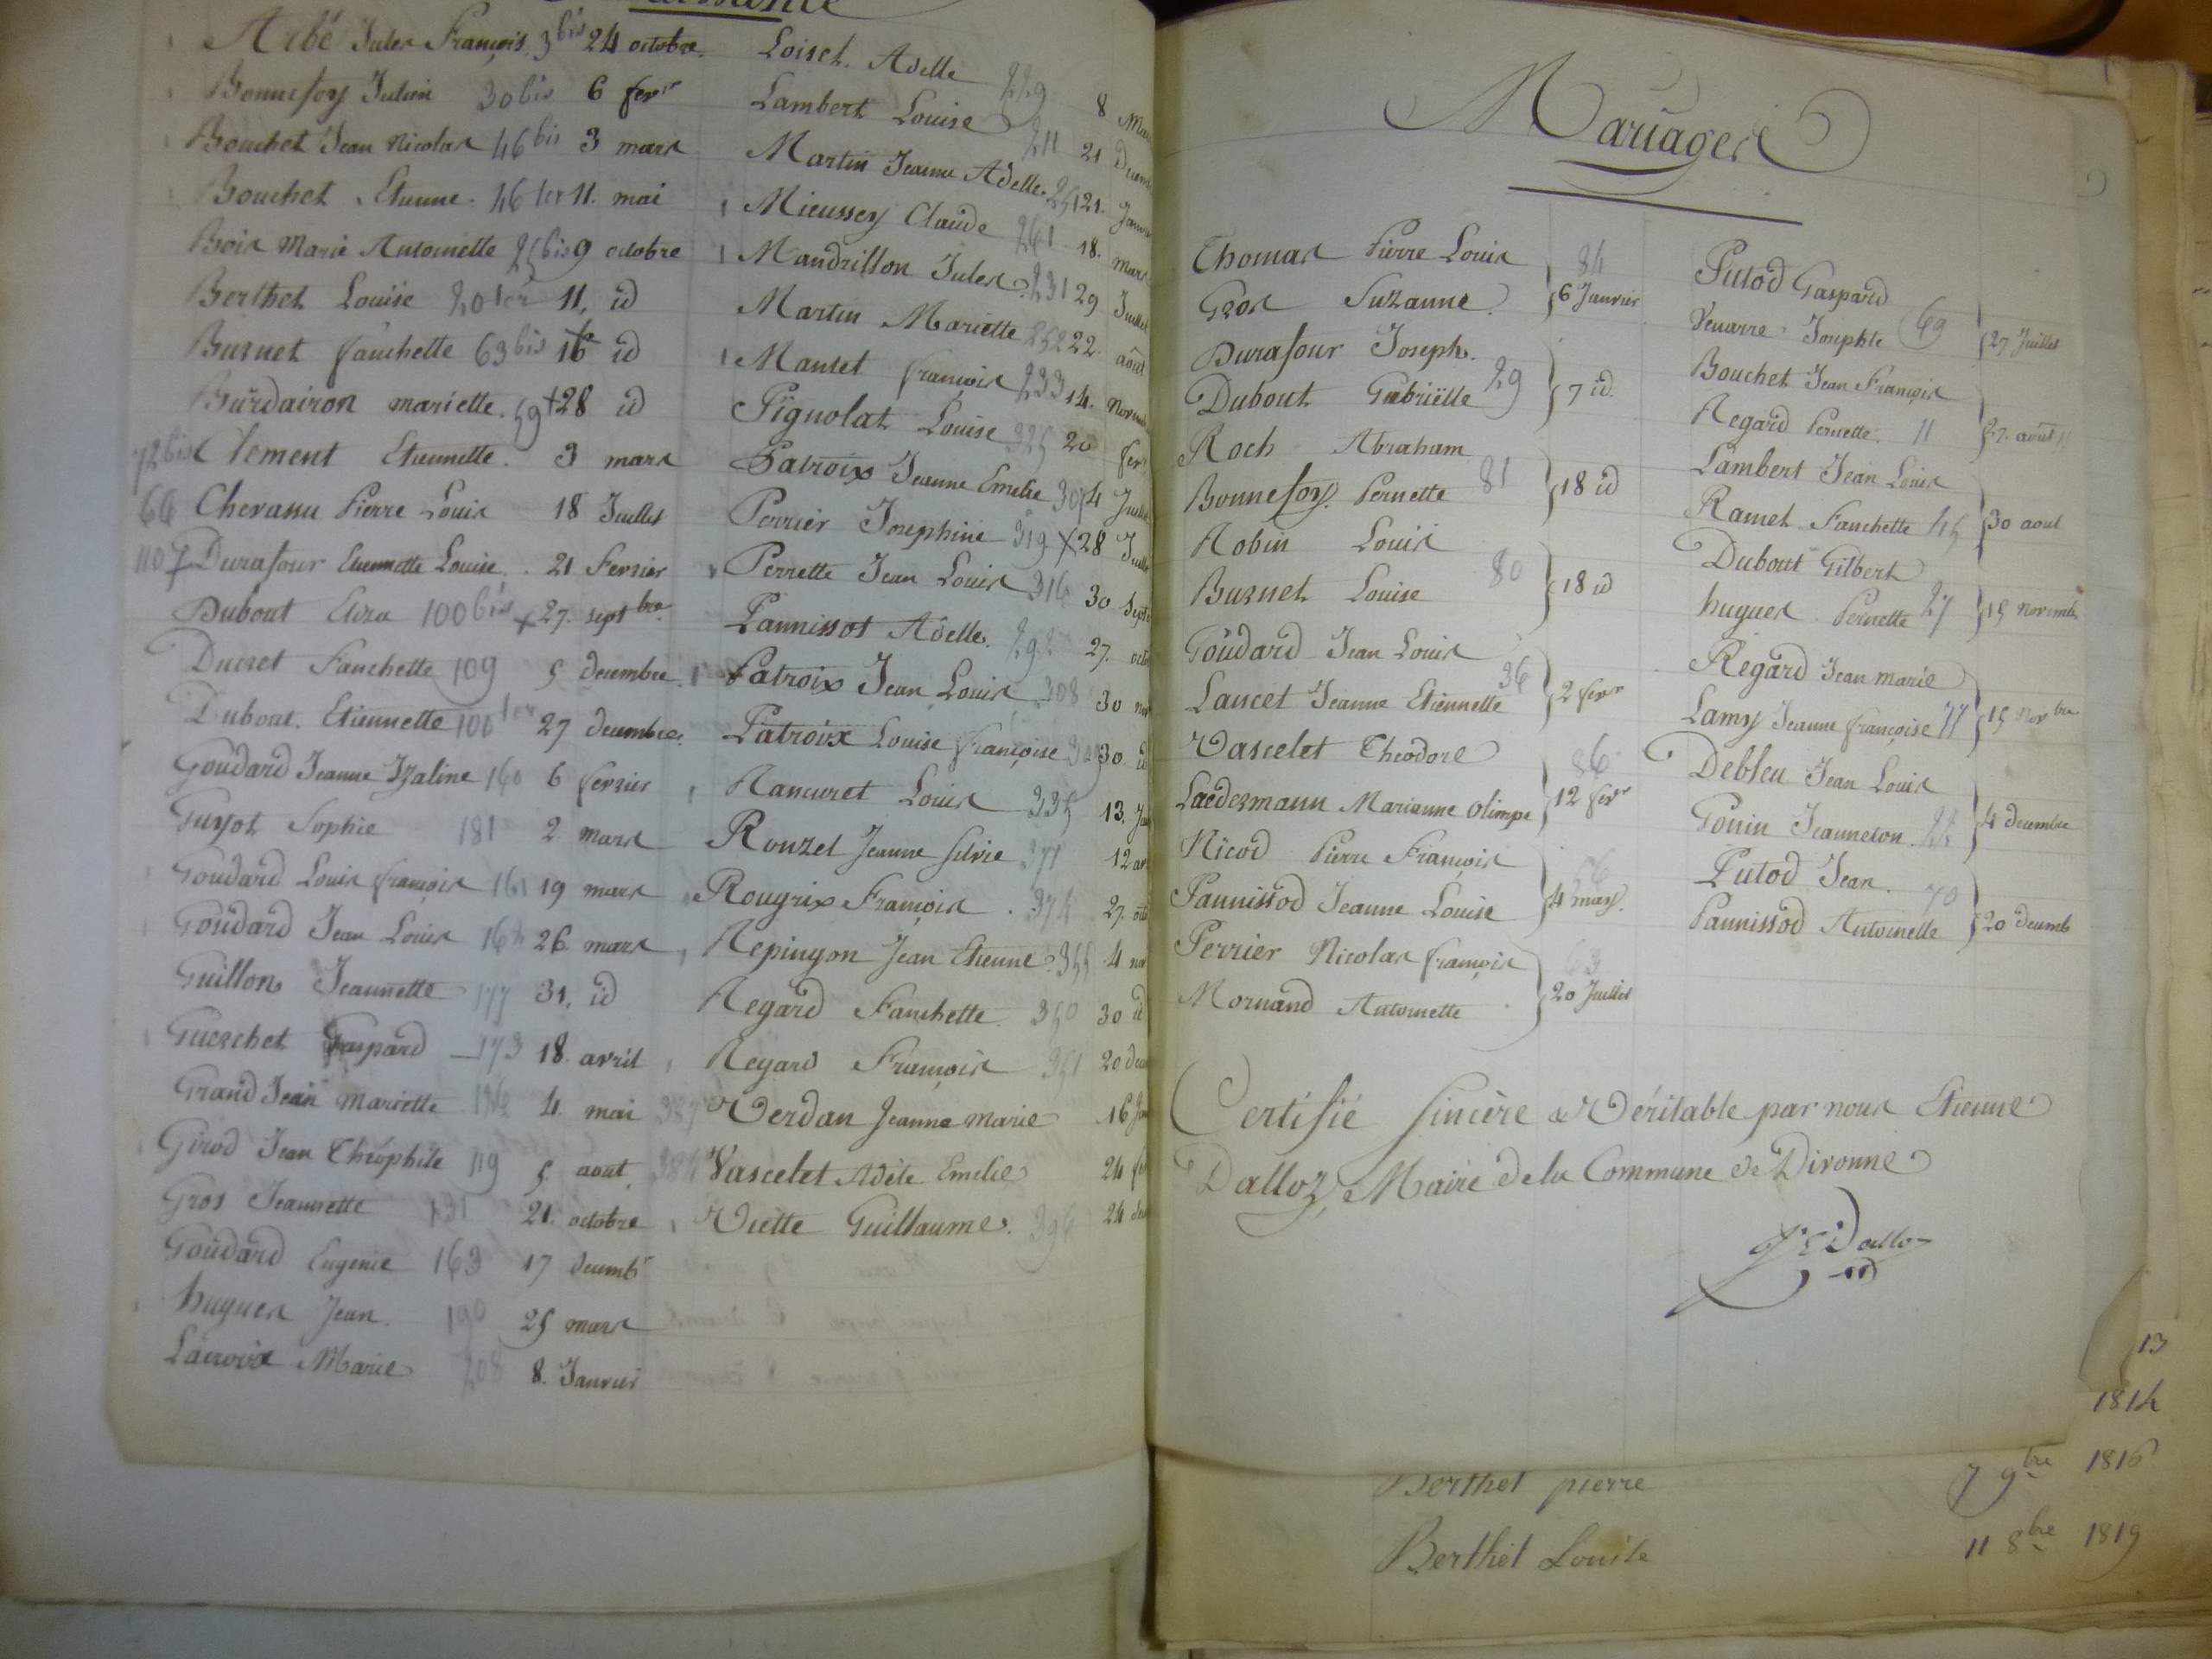 Arbé Jules François 3 bis 24 octobre
Bonnefoy Julien 30 bis 6 fevr
Bouchet Jean Nicolas 46 bis 3 mars
Bouchet Etienne 46 ter 11. mai
Bois Marie Antoinette 25 bis 9 octobre
Berthet Louise 20 ter 11, id
Burnet fanchette 63 bis 16 id
Burdairon mariette. 59 + 28 id
72 bis Clement Etiennette. 3 mars
66 Chevassu Pierre Louis 18 Juillet
110 Durafour Etiennette Louise. 21 Fevrier
Dubout Elisa 100 bis 27. septbre
Ducret Fanchette 109 5 decembre
Dubout. Etiennette 100 ter 27 decembre.
Goudard Jeanne Izaline 160 6 fevrier
Guyot Sophie 181 2. mars
Goudard Louis françois 161 19 mars
Goudard Jean Louis 162 26. mars
Guillon Jeannette 177 31. id
Guerchet Gaspard 173 18. avril
Grand Jean mariette 4. mai
Girod Jean Théophile 119 5. aout
Gros Jeannette 131 21. octobre
Goudard Eugenie 163 17 decembr
hugues Jean 190 25 mars
Lacroix Marie 208 8. Janvier
Loiset. Adelle 229 8
Lambert Louise 211 21
Martin Jeanne Adelle. 251 21.
Mieussey Claude 261 18. mars
Mandrillon Jules 231 29
Martin Mariette 252 22 aout
Manset françois 233 14.
Pignolat Louise 325 20
Patroix Jeanne Emelie 307 4
Perrier Josephine 319 28
Perrette Jean Louis 316 30
Pannissot Adelle. 292 27.
Patroix Jean Louis 308 30
Patroix Louise françoise 309 30. id
Rancuret Louis 335 13.
Rouzet Jeanne silvie 371 12
Rougrix François. 374 27.
Repingon Jean Etienne. 355 4
Regard Fanchette. 350 30 id
Regard François 351 20
Verdan Jeanne Marie 16
Vascelet Adèle Emelie 24
Viette Guillaume. 396 24
Mariages
Thomas Pierre Louis 84
Gros Suzanne. 6 Janvier
Durafour Joseph.
Dubout Gabriëlle 29 7 id.
Roch Abraham
Bonnefoy. Pernette 81 18 id
Robin Louis
Burnet Louise 80 18 id
Goudard Jean Louis
Lancet Jeanne Etiennette 36 2 fevr
Vascelet Théodore 86
Laedermann Marianne Olimpe 12 fevr
Nicod Pierre François
Pannissod Jeanne Louise 4 may.
Perrier Nicolas françois 63
Mornand Antoinette 20 Juillet
Putod Gaspard
Josephte 69 27 Juillet
Bouchet Jean François
Regard Pernette. 11 27. aout
Lambert Jean Louis
Ramel Fanchette 45 30 aout
Dubout Gilbert
hugues Pernette 27 15 Novemb
Regard Jean marie
Lamy Jeanne françoise 77 15 Novbre
Debleu Jean Louis
Gouin Jeanneton. 22 4 decembre
Putod Jean. 70
Pannissod Antoinette 20 decemb
Certifié sincère & Véritable par nous Etienne
Dalloz, Maire de la Commune de Divonne
Dalloz
13
1814
Berthet pierre 7 9bre 1816
Berthet Louise 11 8bre 1819